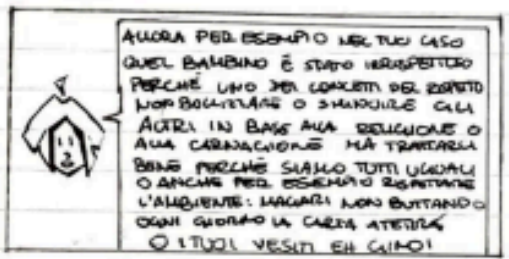 ALLORA PER ESEMPIO NEL TUO CASO
QUEL BAMBINO È STATO IRRISPETTOSO
PERCHÉ UNO DEI CONCETTI DEL RISPETTO
NON BULLIZZARE O SMINUIRE GLI
ALTRI IN BASE ALLA RELIGIONE O
ALLA CARNAGIONE MA TRATTARLI
BENE PERCHÉ SIAMO TUTTI UGUALI
O ANCHE PER ESEMPIO RISPETTARE
L'AMBIENTE: MAGARI NON BUTTANDO
OGNI GIORNO LA CARTA A TERRA
O I TUOI VESTITI EH